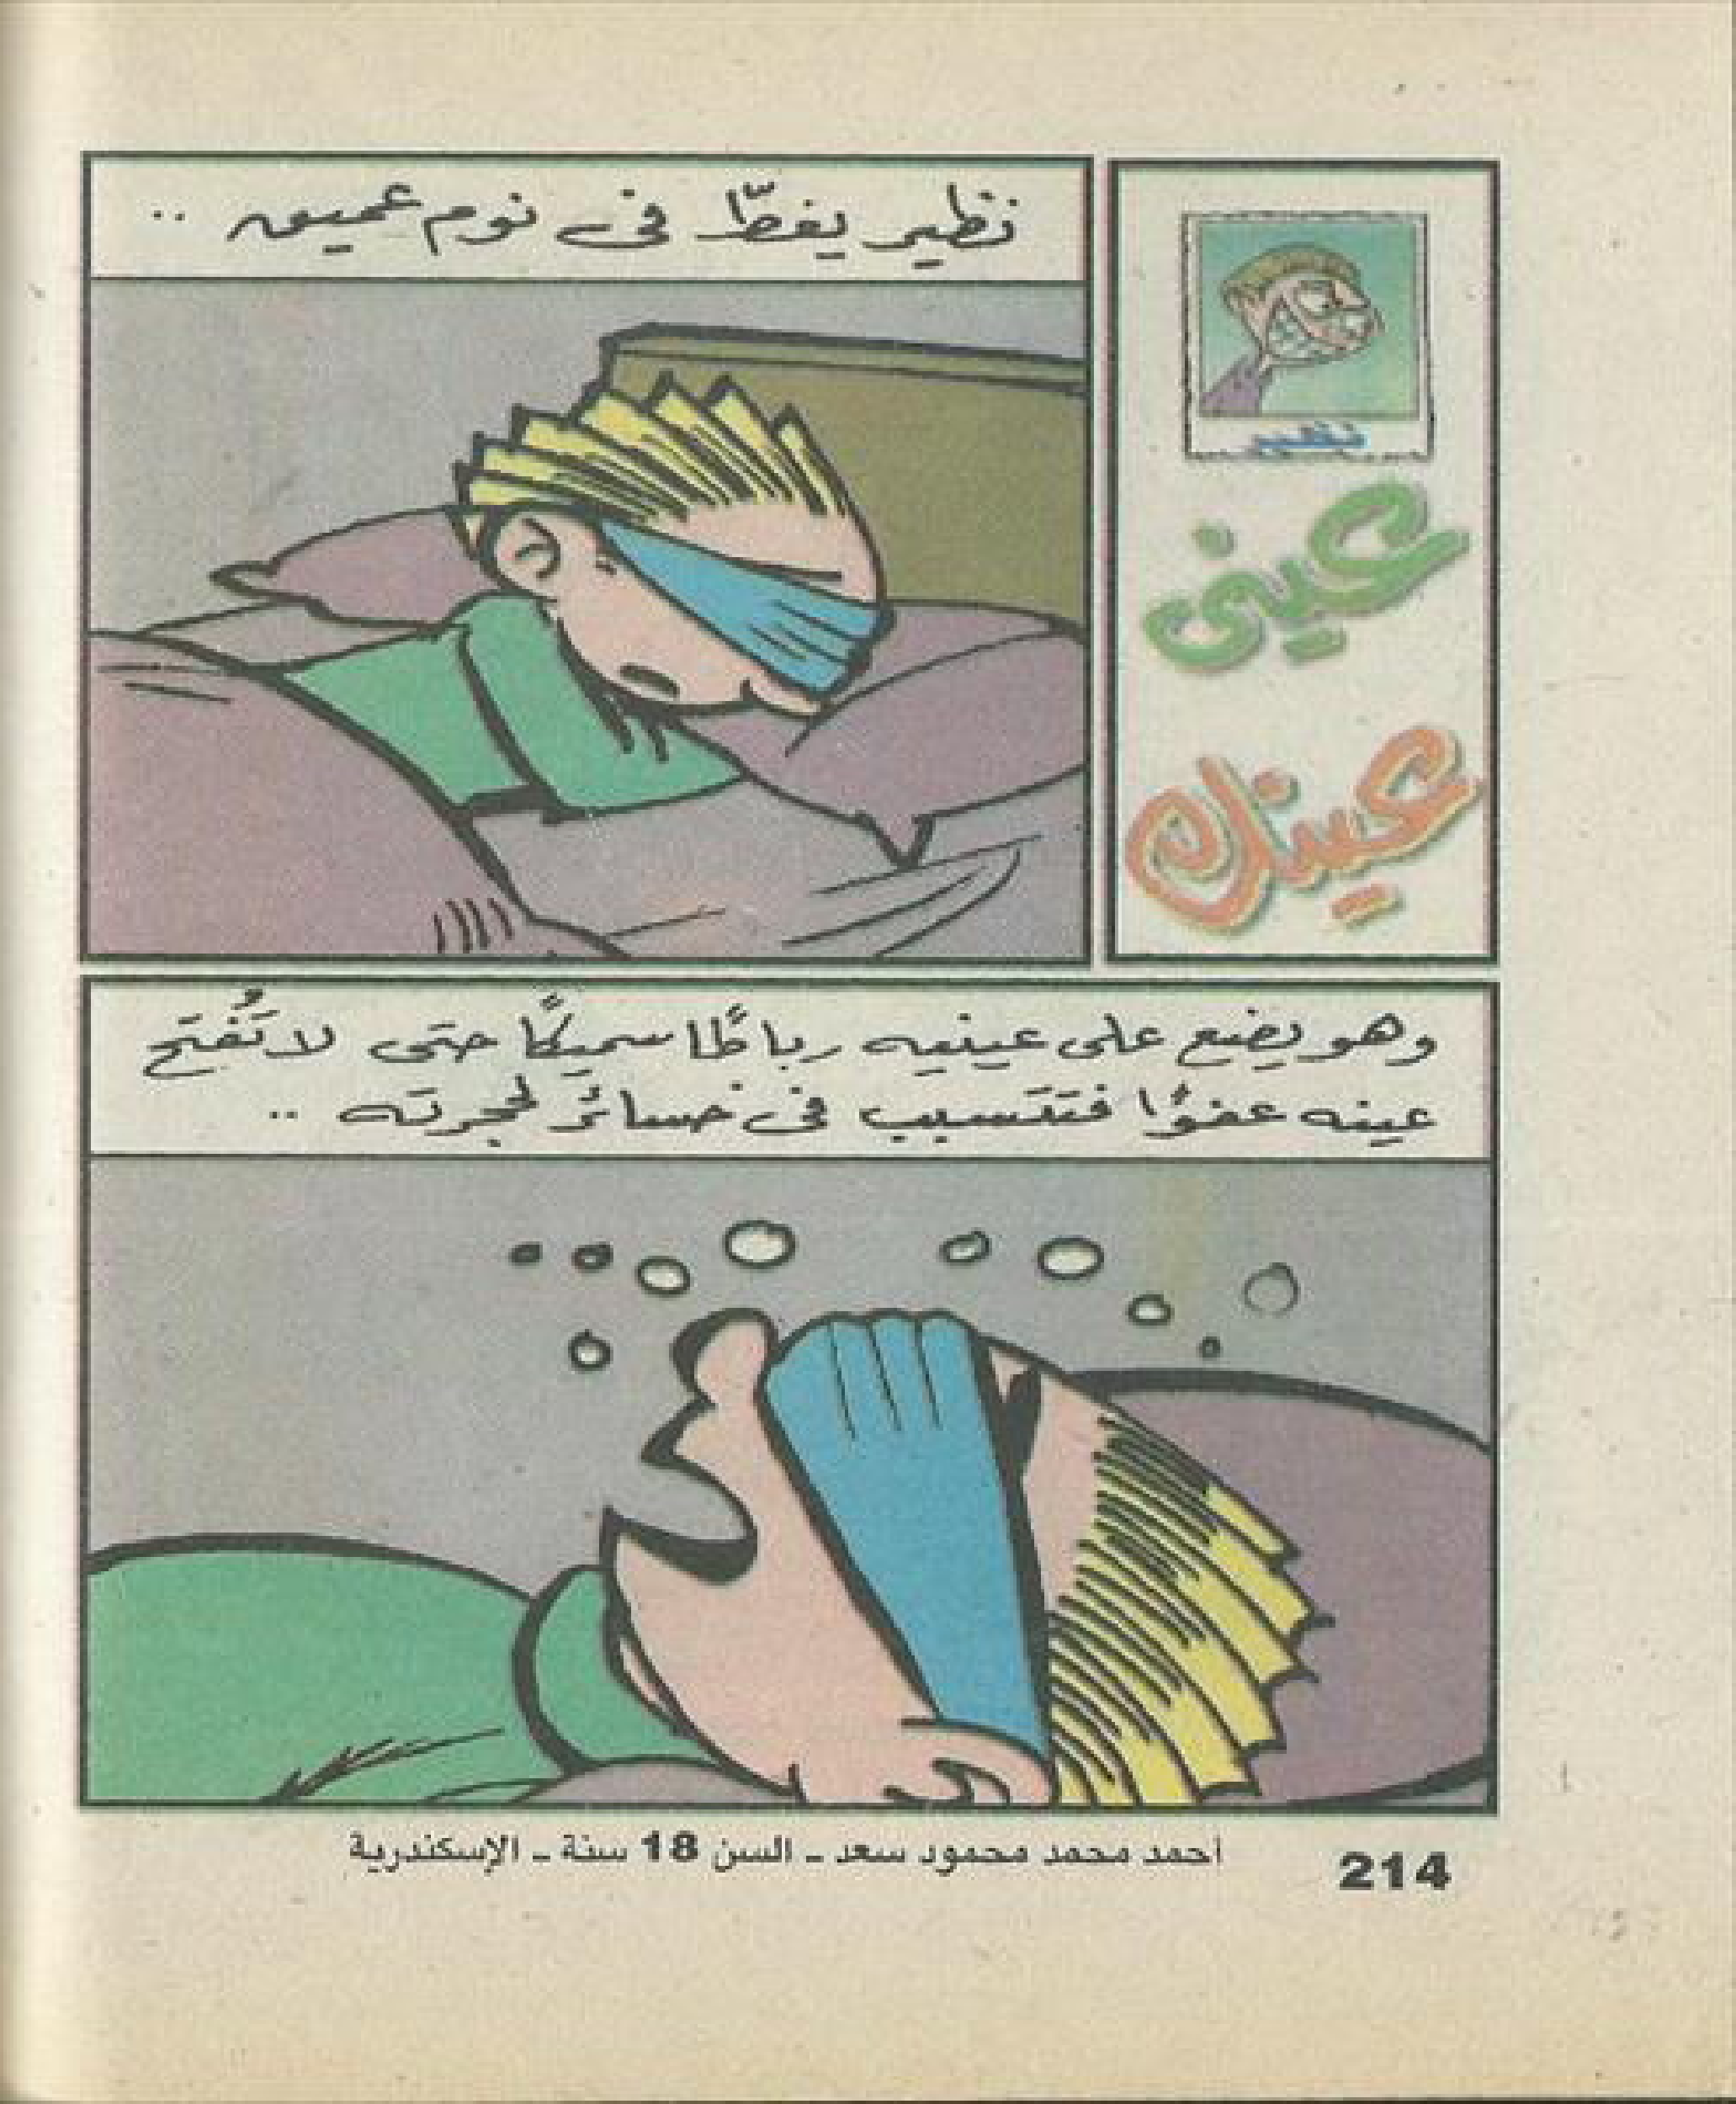 نظير
عينى
عينك
نظير يغطّ فى نوم عميق ..
وهو يضع على عينيه رباطًا سميكًا حتى لا تُفتَح
عينه عفوًا فتتسبب فى خسائر لحجرته ..
أحمد محمد محمود سعد ـ السن 18 سنة ـ الإسكندرية
214